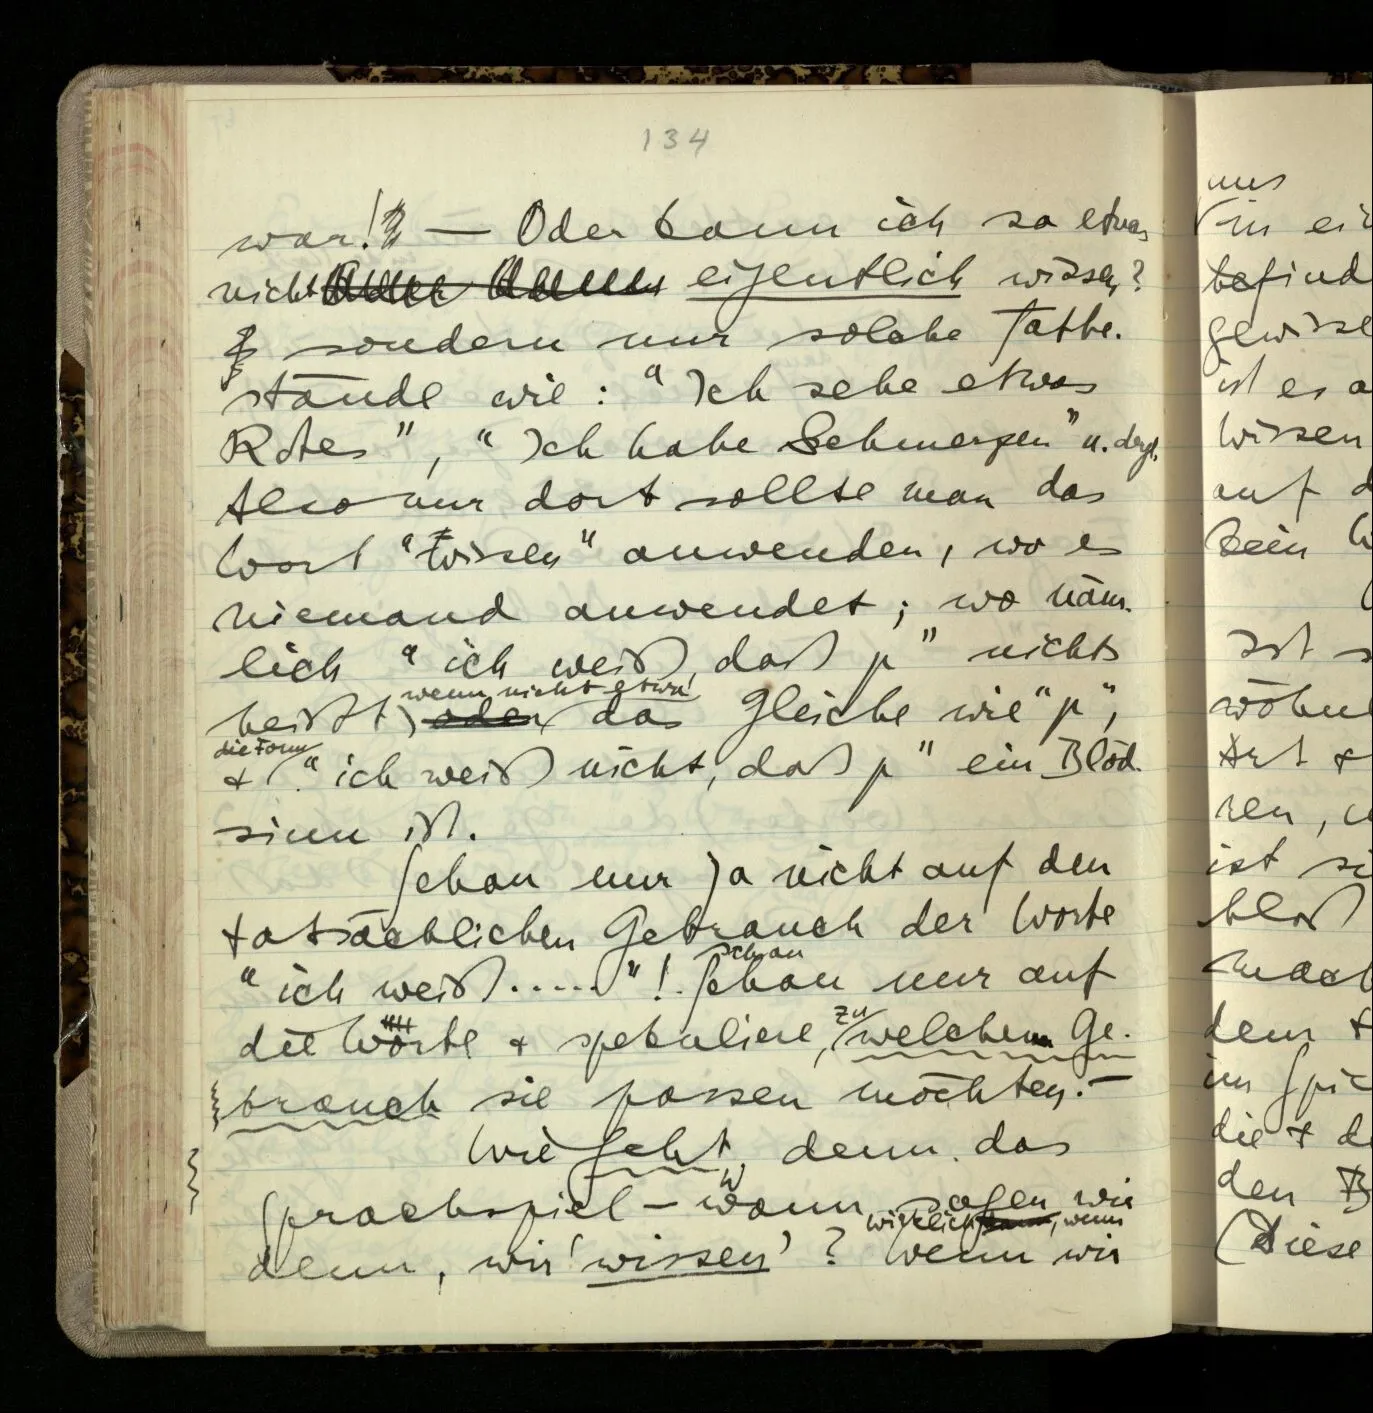 134
war! — Oder kann ich so etwas
nicht eigentlich wissen?
sondern nur solche Tatbe-
stände wie: “Ich sehe etwas
Rotes”, “Ich habe Schmerzen” u. dergl.
Also nur dort sollte man das
Wort “wissen” anwenden, wo es
niemand anwendet; wo näm-
lich “ich weiß, daß p” nichts
wenn nicht etwa
heißt, oder das Gleiche wie “p”,
die Form
& “ich weiß nicht, daß p” ein Blöd-
sinn ist.
Schau nur ja nicht auf den
tatsächlichen Gebrauch der Worte
“ich weiß.....”! schau
Schau nur auf
die Worte & spekuliere, zu welchem Ge-
brauch sie passen möchten. –
Wie geht denn das
Sprachspiel – wann sagen wir
wirklich, wenn
denn, wir ‘wissen’? Wenn wir
uns
in
befind
ist es
wissen
auf
kein
Ist
ist
dem
im
die &
den
(Diese